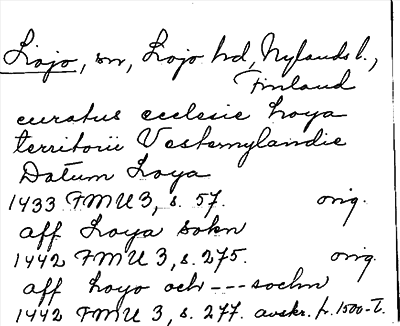 Lojo, sn, Lojo hd, Nylands l.,
Finland
curatus ecclesie Loya
territorii Vesternylandie
Datum Loya
1433 FMU 3, s. 57. orig.
aff Loya sokn
1442 FMU 3, s. 275. orig.
aff loyo och --- sochn
1442 FMU 3, s. 277. avskr. fr. 1500-t.